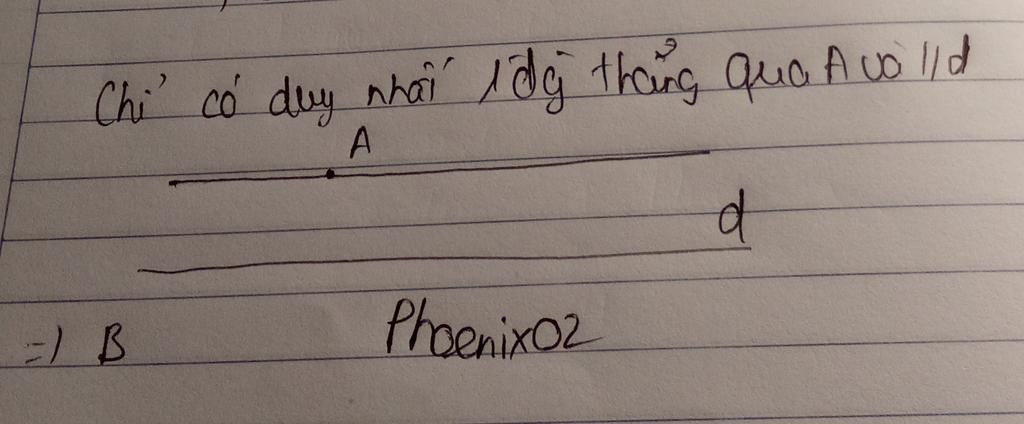 Chỉ có duy nhất 1 đg̀ thẳng qua A và //d
A
d
=) B Phoenix02